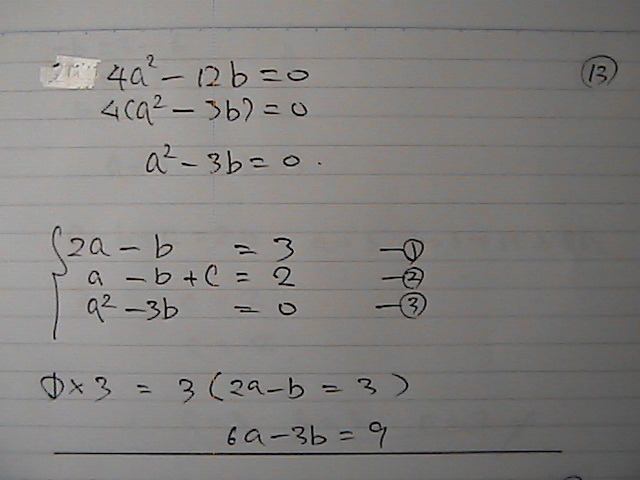 4a² - 12b = 0
⑬
4(a² - 3b) = 0
a² - 3b = 0.
2a - b = 3 —①
a - b + c = 2 —②
a² - 3b = 0 —③
① × 3 = 3(2a - b = 3)
6a - 3b = 9